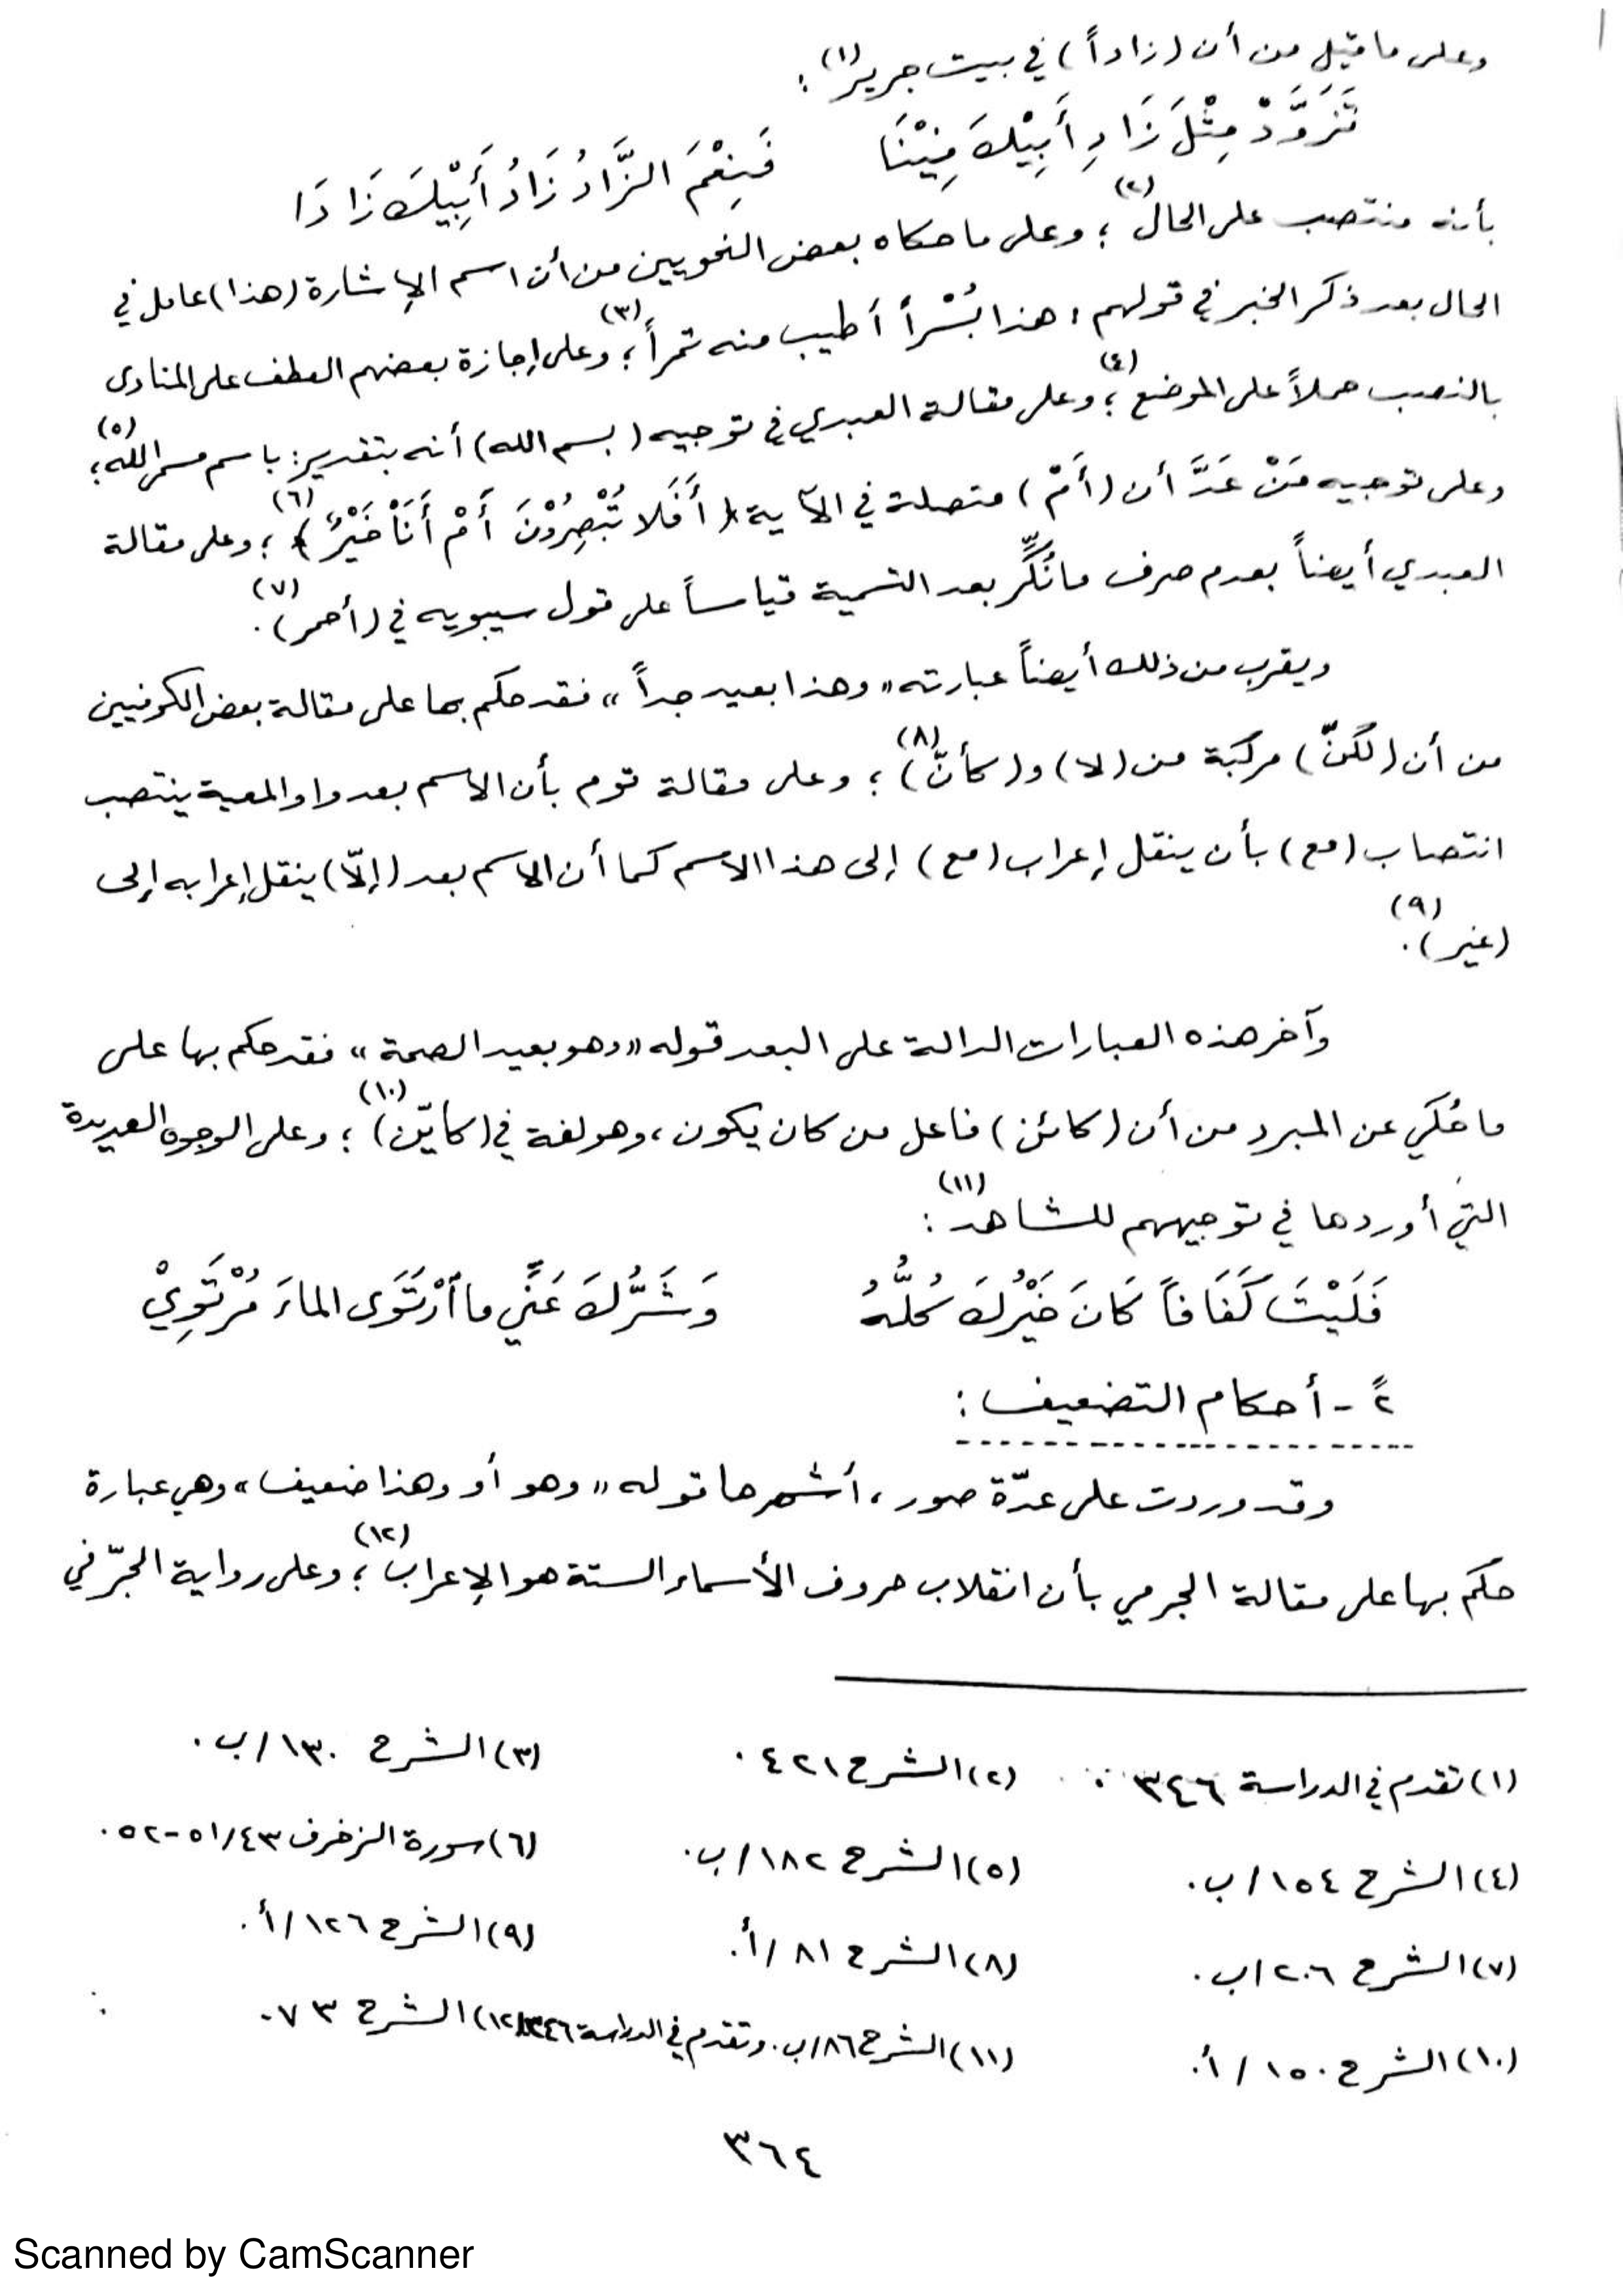 وعلى ما قيل من أن (زاداً) في بيت جرير(١):
تَزَوَّدْ مِثْلَ زَادِ أَبِيْكَ فِيْنَا فَنِعْمَ الزَّادُ زَادُ أَبِيْكَ زَادَا
بأنه منتصب على الحال(٢)؛ وعلى ما حكاه بعض النحويين من أن اسم الإشارة (هذا) عامل في
الحال بعد ذكر الخبر في قولهم: هذا بُسْراً أطيب منه تمراً(٣)؛ وعلى إجازة بعضهم العطف على المنادى
بالنصب حملاً على الموضع(٤)؛ وعلى مقالة العبدي في توجيه (بسم الله) أنه بتقدير: باسم مسمى الله(٥)؛
وعلى توجيه مَنْ عَدَّ أن (أَمْ) متصلة في الآية ﴿أَفَلا تُبْصِرُوْنَ أَمْ أَنَاْ خَيْرٌ﴾(٦)؛ وعلى مقالة
العبدي أيضاً بعدم صرف ما نُكِّر بعد التسمية قياساً على قول سيبويه في (أحمر)(٧).
ويقرب من ذلك أيضاً عبارته «وهذا بعيد جداً» فقد حكم بها على مقالة بعض الكوفيين
من أن (لكنّ) مركبة من (لا) و(كأنّ)(٨)؛ وعلى مقالة قوم بأن الاسم بعد واو المعية ينتصب
انتصاب (مع) بأن ينقل إعراب (مع) إلى هذا الاسم كما أن الاسم بعد (إلّا) ينقل إعرابه إلى
(غير)(٩).
وآخر هذه العبارات الدالة على البعد قوله «وهو بعيد الصحة» فقد حكم بها على
ما حُكي عن المبرد من أن (كائن) فاعل من كان يكون، وهو لغة في (كأيّن)(١٠)؛ وعلى الوجوه العديدة
التي أوردها في توجيههم للشاهد(١١):
فَلَيْتَ كَفَافاً كَانَ خَيْرُكَ كُلُّهُ وَشَرُّكَ عَنِّي ما ٱرْتَوَى الماءَ مُرْتَوِيْ
٢ً - أحكام التضعيف:
وقد وردت على عدّة صور، أشهرها قوله «وهو أو وهذا ضعيف» وهي عبارة
حكم بها على مقالة الجرمي بأن انقلاب حروف الأسماء الستة هو الإعراب(١٢)؛ وعلى رواية الجرّ في
(١) تقدم في الدراسة ٣٤٦. (٢) الشرح ٤٢١. (٣) الشرح ١٣٠/ب.
(٤) الشرح ١٥٤/ب. (٥) الشرح ١٨٢/ب. (٦) سورة الزخرف ٥١/٤٣-٥٢.
(٧) الشرح ٢٠٦/ب. (٨) الشرح ٨١/أ. (٩) الشرح ١٢٦/أ.
(١٠) الشرح ١٥٠/أ. (١١) الشرح ٨٦/ب. وتقدم في الدراسة ٣٤٦. (١٢) الشرح ٧٣.
٣٦٤
Scanned by CamScanner